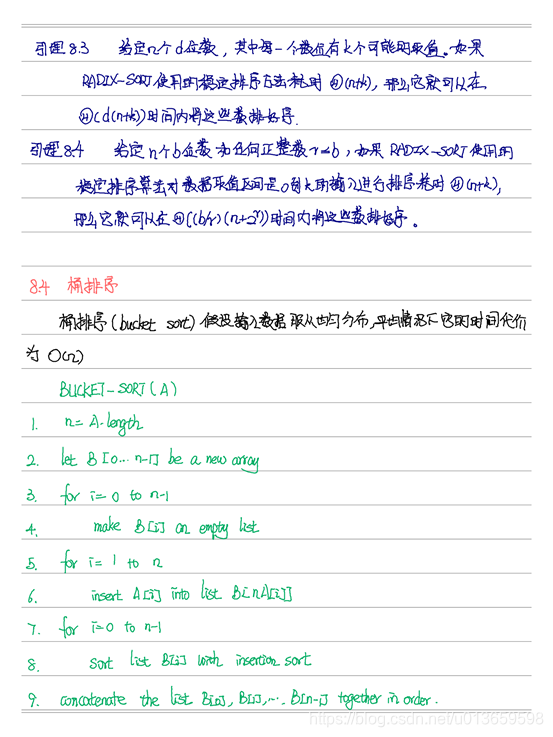 引理8.3 给定n个d位数，其中每一个数位有k个可能的取值。如果
RADIX-SORT使用的稳定排序方法耗时Θ(n+k)，那么它就可以在
Θ(d(n+k))时间内将这些数排好序.
引理8.4 给定n个b位数和任何正整数r=b，如果RADIX-SORT使用的
稳定排序算法对数据取值区间是0到k的输入进行排序耗时Θ(n+k)，
那么它就可以在Θ((b/r)(n+2^r))时间内将这些数排好序。
8.4 桶排序
桶排序(bucket sort)假设输入数据服从均匀分布,平均情况下它的时间代价
为O(n)
BUCKET-SORT(A)
1. n=A.length
2. let B[0...n-1] be a new array
3. for i=0 to n-1
4. make B[i] an empty list
5. for i=1 to n
6. insert A[i] into list B[nA[i]]
7. for i=0 to n-1
8. sort list B[i] with insertion sort
9. concatenate the list B[0], B[1], ..., B[n-1] together in order.
https://blog.csdn.net/u013659598